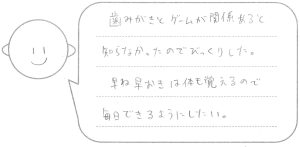 歯みがきとゲームが関係あると
知らなかったのでびっくりした。
早ね早おきは体も覚えるので
毎日できるようにしたい。